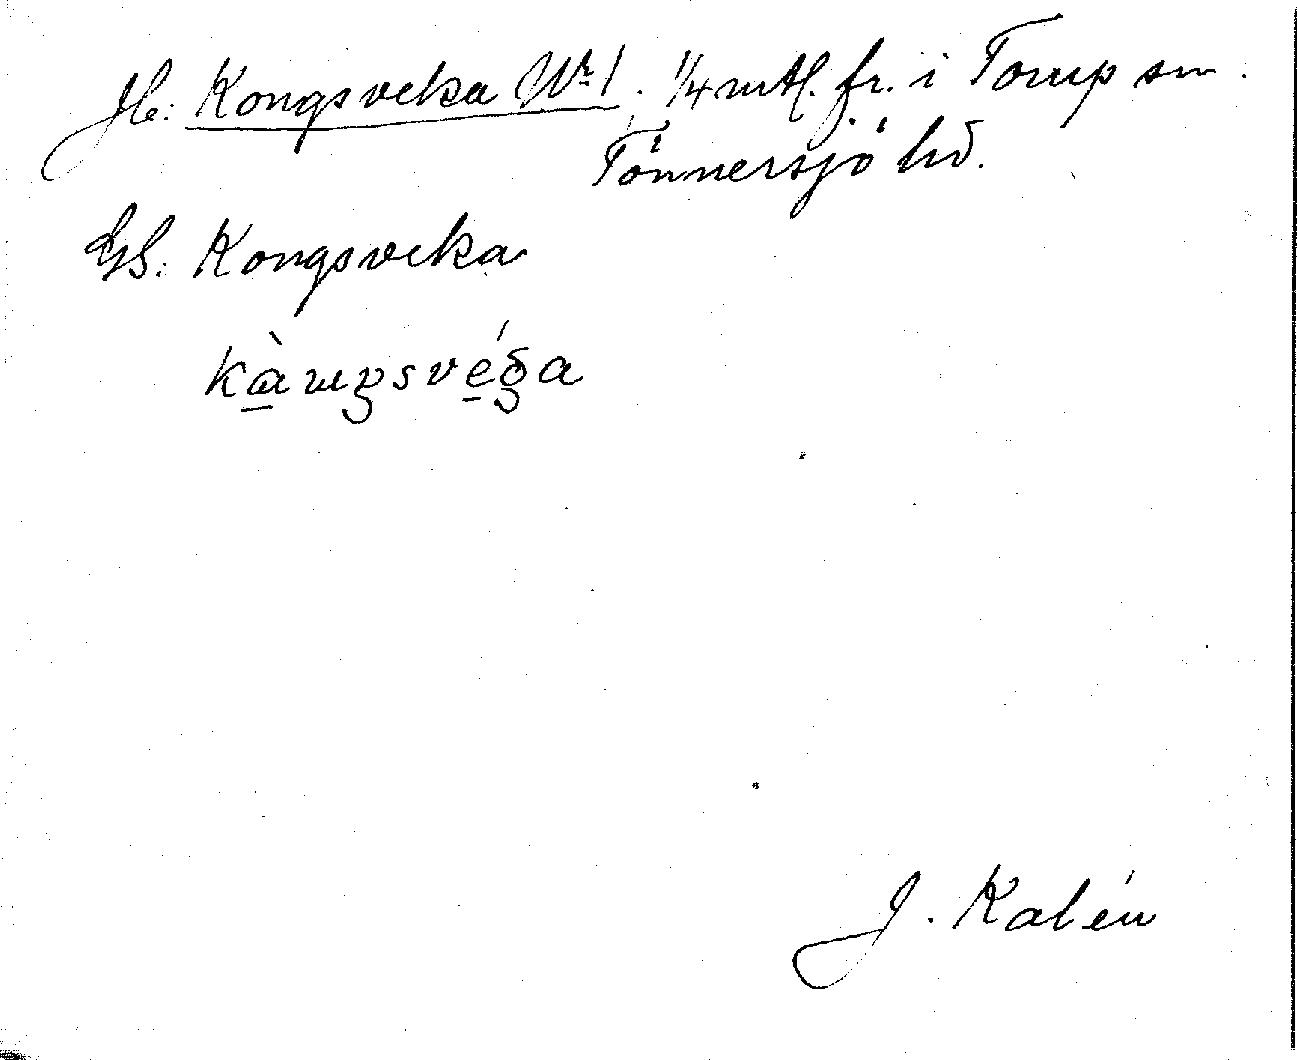 Jb: Kongsveka Nr 1. 1/4 mtl. fr. i Torup sn.
Tönnersjö hd.
GS: Kongsveka
J. Kalén